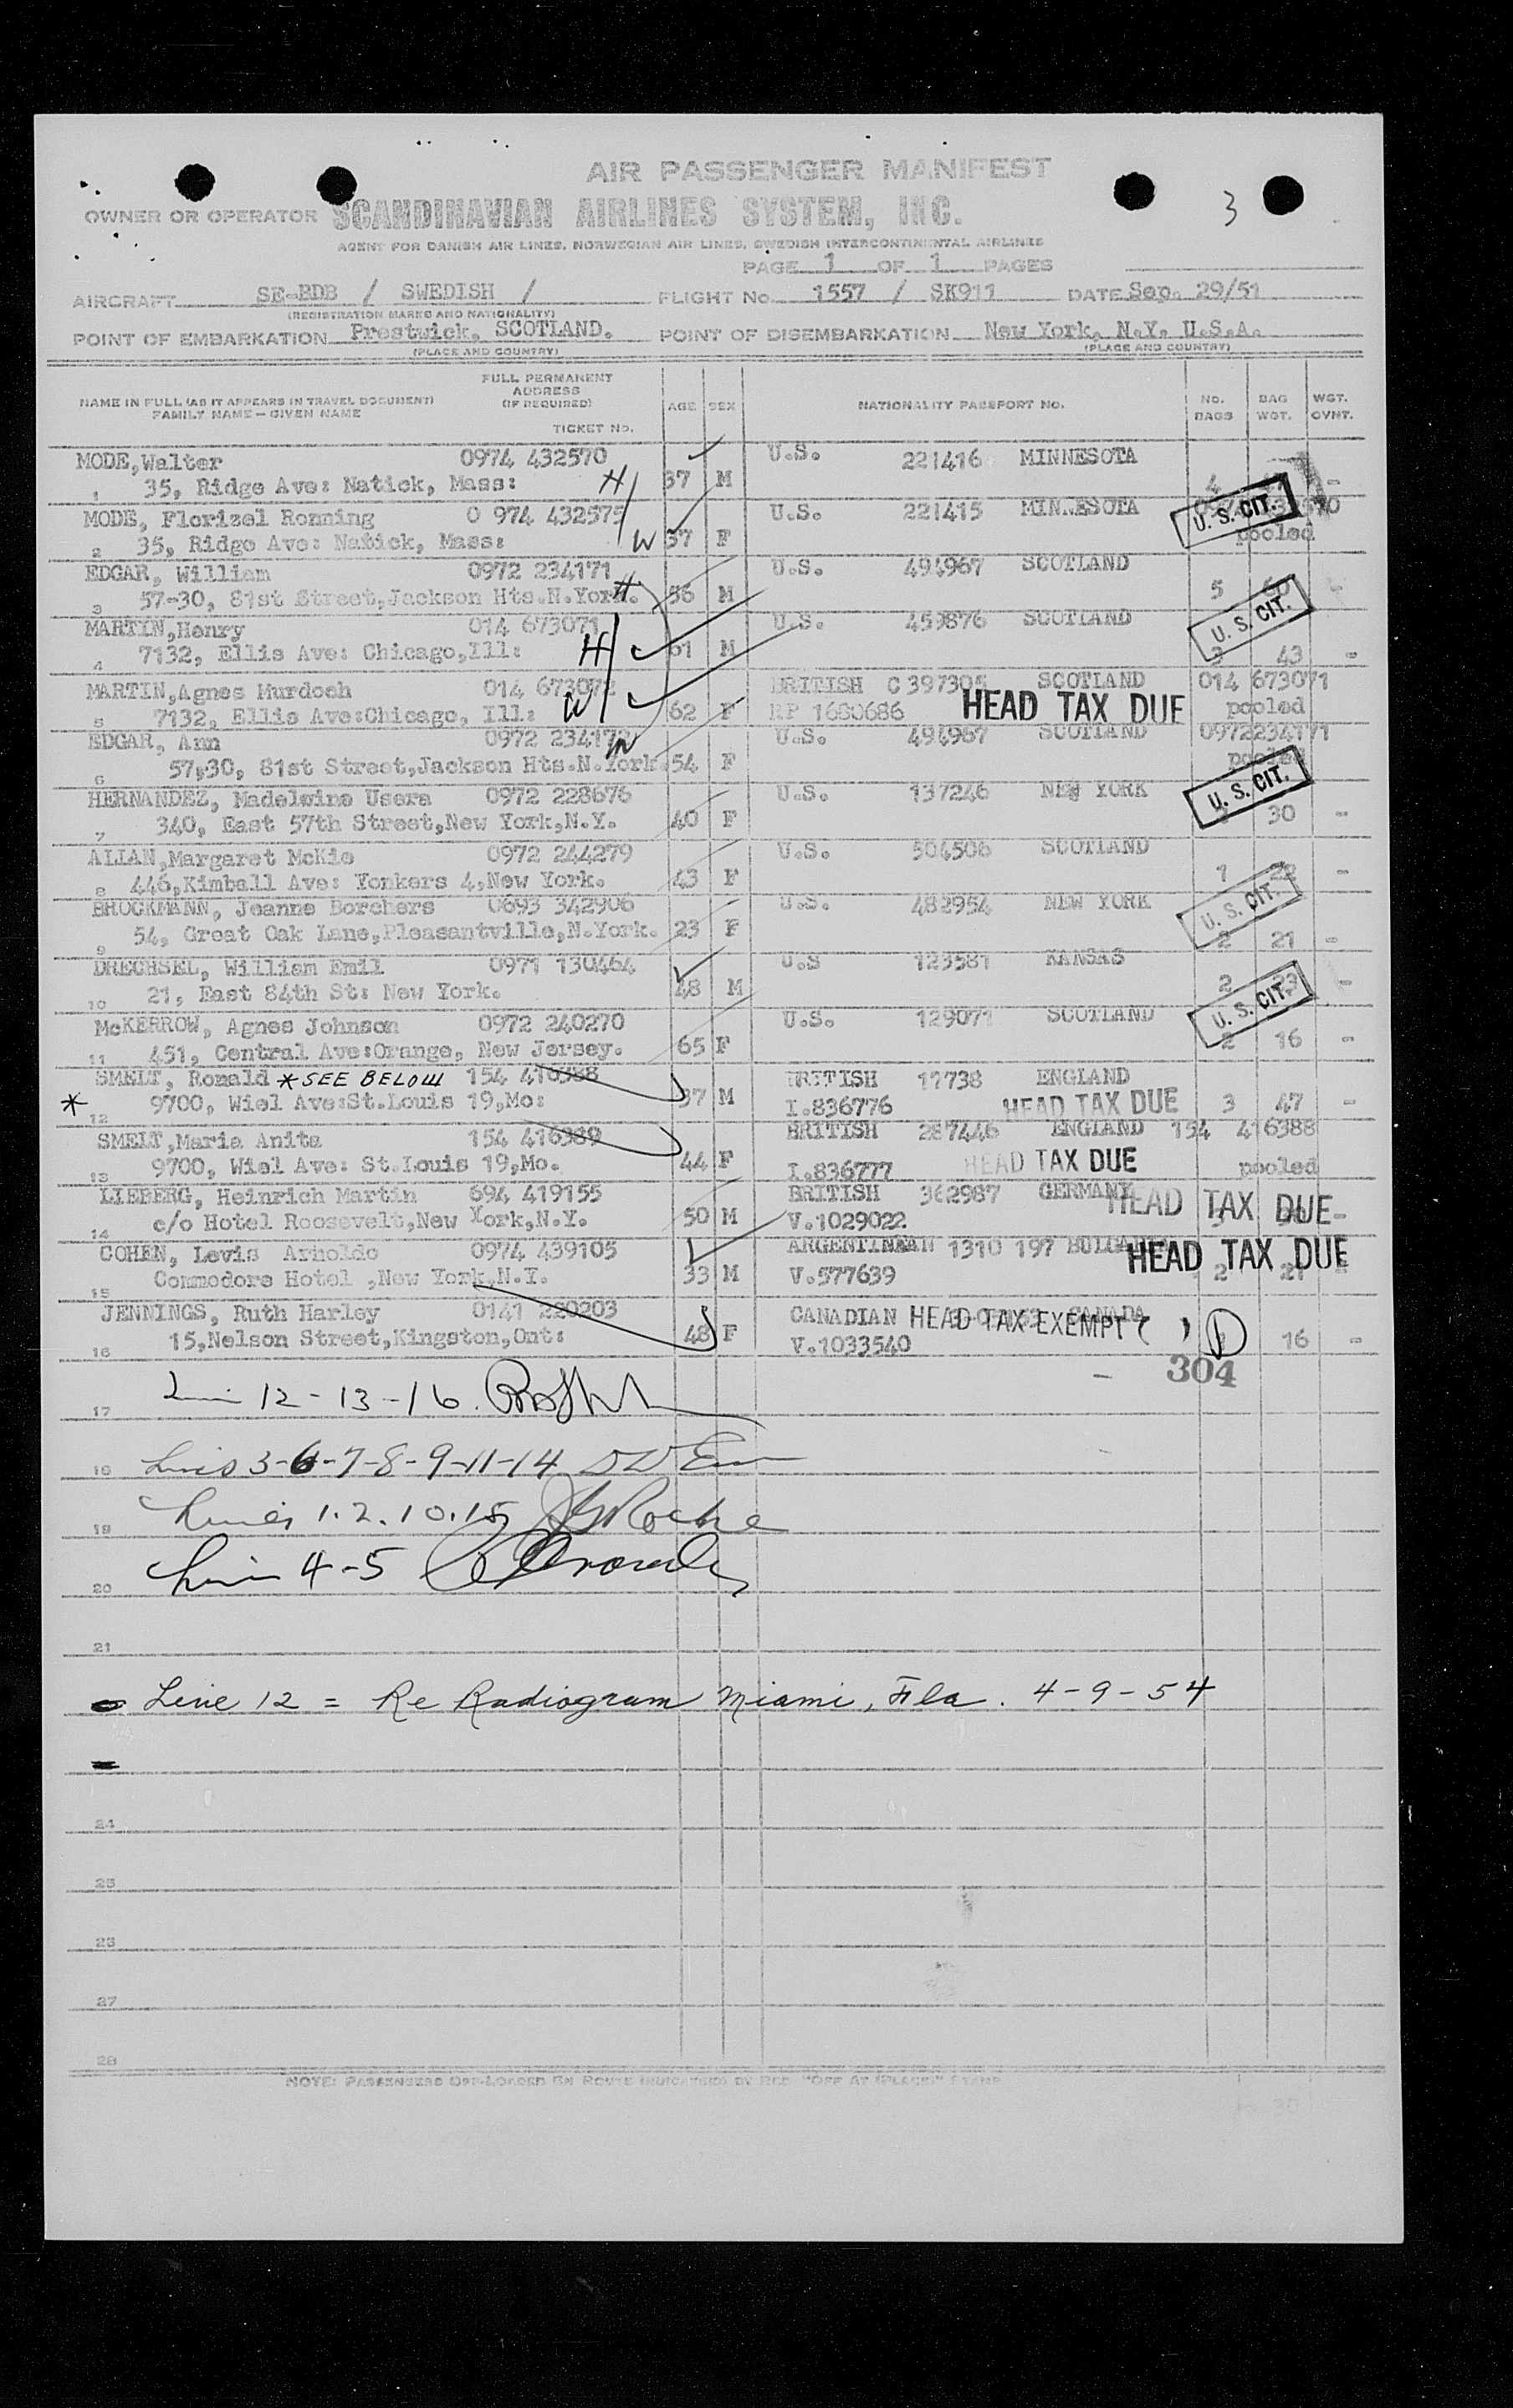 AIR PASSENGER MANIFEST
3
OWNER OR OPERATOR SCANDINAVIAN AIRLINES SYSTEM, INC.
AGENT FOR DANISH AIR LINES, NORWEGIAN AIR LINES, SWEDISH INTERCONTINENTAL AIRLINES
PAGE 1 OF 1 PAGES
AIRCRAFT SE-BDB / SWEDISH / FLIGHT No. 1557 / SK911 DATE Sep. 29/51
(REGISTRATION MARKS AND NATIONALITY)
POINT OF EMBARKATION Prestwick, SCOTLAND. POINT OF DISEMBARKATION New York, N.Y. U.S.A.
(PLACE AND COUNTRY) (PLACE AND COUNTRY)
NAME IN FULL (AS IT APPEARS IN TRAVEL DOCUMENT) FAMILY NAME - GIVEN NAME FULL PERMANENT ADDRESS (IF REQUIRED) TICKET NO. AGE SEX NATIONALITY PASSPORT NO. NO. BAGS BAG WGT. WGT. OVNT.
MODE, Walter 0974 432570 U.S. 221416 MINNESOTA
1 35, Ridge Ave: Natick, Mass: H 37 M 4 -
MODE, Florizel Ronning 0 974 432575 U.S. 221415 MINNESOTA U. S. CIT.
2 35, Ridge Ave: Natick, Mass: W 37 F pooled
EDGAR, William 0972 234171 U.S. 494967 SCOTLAND
3 57-30, 81st Street, Jackson Hts. N. York. H 56 M 5 60
MARTIN, Henry 014 673071 U.S. 459876 SCOTLAND U. S. CIT.
4 7132, Ellis Ave: Chicago, Ill: H 61 M 3 43 -
MARTIN, Agnes Murdoch 014 673072 BRITISH C 397305 SCOTLAND 014 673071
5 7132, Ellis Ave: Chicago, Ill: W 62 F RP 1680686 HEAD TAX DUE pooled
EDGAR, Ann 0972 234172 U.S. 494967 SCOTLAND 0972234171
6 57,30, 81st Street, Jackson Hts. N. York. W 54 F pooled
HERNANDEZ, Madelwine Usera 0972 228676 U.S. 137246 NEW YORK U. S. CIT.
7 340, East 57th Street, New York, N.Y. 40 F 30 -
ALLAN, Margaret McKie 0972 244279 U.S. 504506 SCOTLAND
8 446, Kimball Ave: Yonkers 4, New York. 43 F 1 22 -
BROCKMANN, Jeanne Borchers 0693 342906 U.S. 482954 NEW YORK U. S. CIT.
9 54, Great Oak Lane, Pleasantville, N. York. 23 F 2 21 -
DRECHSEL, William Emil 0971 130464 U.S 123581 KANSAS
10 21, East 84th St: New York. 48 M 2 23 -
McKERROW, Agnes Johnson 0972 240270 U.S. 129071 SCOTLAND U. S. CIT.
11 451, Central Ave: Orange, New Jersey. 65 F 2 16 -
SMELT, Ronald * SEE BELOW 154 416388 BRITISH 17738 ENGLAND
* 12 9700, Wiel Ave: St. Louis 19, Mo: 37 M I.836776 HEAD TAX DUE 3 47 -
SMELT, Maria Anita 154 416389 BRITISH 287446 ENGLAND 154 416388
13 9700, Wiel Ave: St. Louis 19, Mo. 44 F I.836777 HEAD TAX DUE pooled
LIEBERG, Heinrich Martin 694 419155 BRITISH 362987 GERMANY
14 c/o Hotel Roosevelt, New York, N.Y. 50 M V.1029022 HEAD TAX DUE -
COHEN, Levis Arnoldo 0974 439105 ARGENTINEAN 1310 197 BULGARIA
15 Commodore Hotel, New York, N.Y. 33 M V.577639 HEAD TAX DUE 2 21 -
JENNINGS, Ruth Harley 0141 220203 CANADIAN CANADA
16 15, Nelson Street, Kingston, Ont: 48 F V.1033540 HEAD TAX EXEMPT ( ) 1 16 -
304
17 12-13-16.
18 Lines 3-6-7-8-9-11-14
19 Lines 1.2.10.15 Roche
20 Lines 4-5
21
Line 12 = Re Radiogram Miami, Fla. 4-9-54
24
25
26
27
28
NOTE: PASSENGERS OFF-LOADED EN ROUTE INDICATED BY RED "OFF AT (PLACE)" STAMP